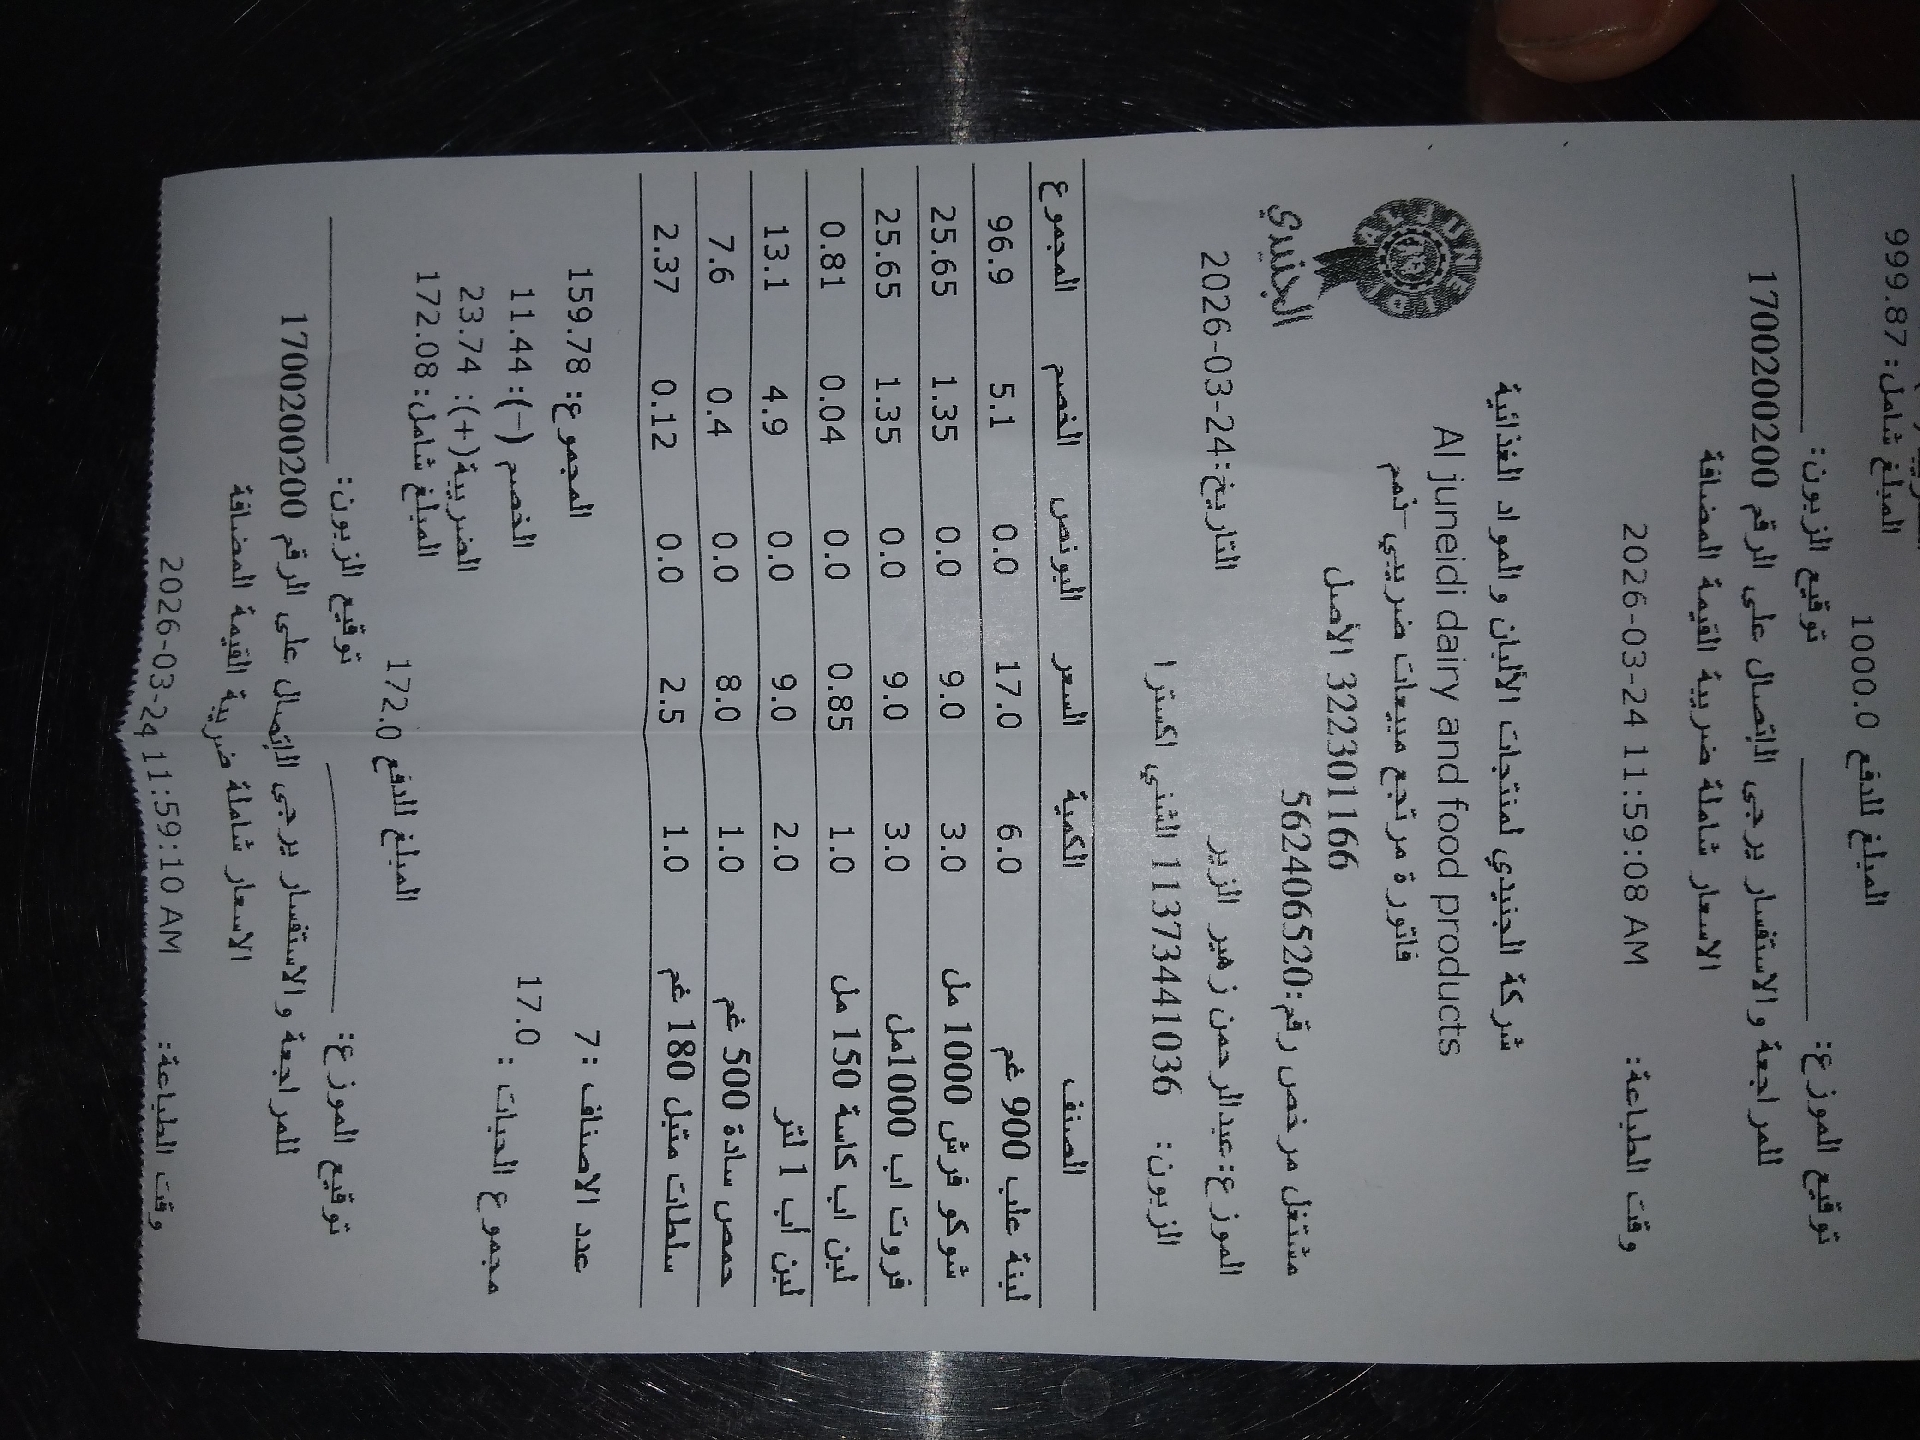 المبلغ شامل: 999.87
المبلغ للدفع 1000.0
توقيع الموزع: ____________ توقيع الزبون: ____________
للمراجعة والاستفسار يرجى الإتصال على الرقم 1700200200
الاسعار شاملة ضريبة القيمة المضافة
وقت الطباعة: 2026-03-24 11:59:08 AM
شركة الجنيدي لمنتجات الألبان والمواد الغذائية
Al juneidi dairy and food products
فاتورة مرتجع مبيعات ضريبي-ذمم
322301166 الأصل
مشتغل مرخص رقم:562406520
الجنيدي
الموزع:عبدالرحمن زهير الزير التاريخ:2026-03-24
الزبون: 1137341036 الشني اكسترا
الصنف الكمية السعر البونص الخصم المجموع
لبنة علب 900 غم 6.0 17.0 0.0 5.1 96.9
شوكو فرش 1000 مل 3.0 9.0 0.0 1.35 25.65
فروت اب 1000مل 3.0 9.0 0.0 1.35 25.65
لبن اب كاسة 150 مل 1.0 0.85 0.0 0.04 0.81
لبن أب 1 لتر 2.0 9.0 0.0 4.9 13.1
حمص سادة 500 غم 1.0 8.0 0.0 0.4 7.6
سلطات متبل 180 غم 1.0 2.5 0.0 0.12 2.37
عدد الاصناف : 7 المجموع: 159.78
مجموع الحبات : 17.0 الخصم (-): 11.44
الضريبة(+): 23.74
المبلغ شامل: 172.08
المبلغ للدفع 172.0
توقيع الموزع: ____________ توقيع الزبون: ____________
للمراجعة والاستفسار يرجى الإتصال على الرقم 1700200200
الاسعار شاملة ضريبة القيمة المضافة
وقت الطباعة: 2026-03-24 11:59:10 AM